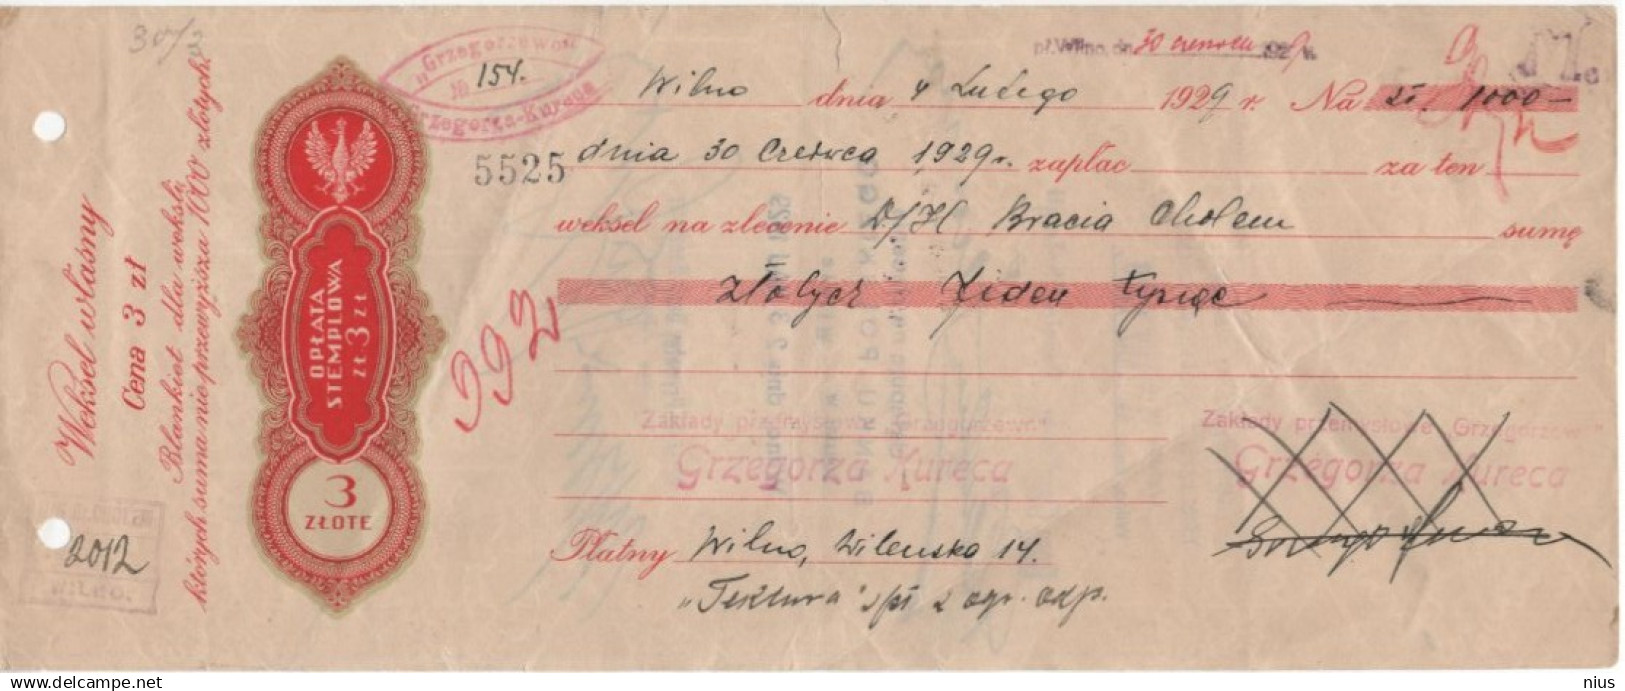 30/VI
Weksel własny
Cena 3 zł
Blankiet dla weksli,
których suma nie przewyższa 1000 złotych
2012
WILNO.
OPŁATA
STEMPLOWA
ZŁ 3 ZŁ
3
ZŁOTE
„Grzegorzewo"
№ 154.
Grzegorza-Kureca
pł. Wilno, dn. 30 czerwca 1929 r.
Wilno dnia 4 Lutego 1929 r. Na zł. 1000-
5525
dnia 30 Czerwca 1929 r. zapłac za ten
weksel na zlecenie D/H Bracia Cholem sumę
Złotych Jeden tysiąc
992
Zakłady przemysłowe „Grzegorzewo"
Grzegorza Kureca
Zakłady przemysłowe „Grzegorzewo"
Grzegorza Kureca
Płatny Wilno, Wileńska 14.
„Tektura" s/pł z ogr. odp.
nius